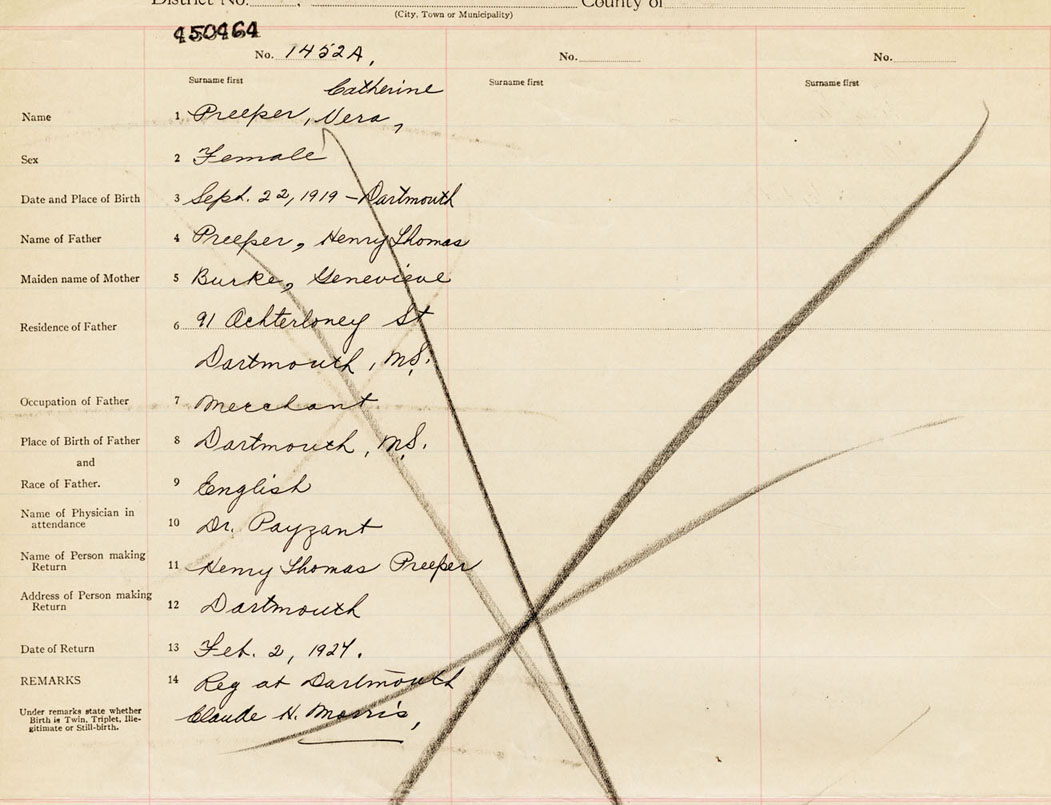 District No. , County of
(City, Town or Municipality)
450464
No. 1452A, No. No.
Surname first Surname first Surname first
Catherine
Name 1 Preeper, Vera,
Sex 2 Female
Date and Place of Birth 3 Sept. 22, 1919 - Dartmouth
Name of Father 4 Preeper, Henry Thomas
Maiden name of Mother 5 Burke, Genevieve
Residence of Father 6 91 Ochterloney St
Dartmouth, N.S.
Occupation of Father 7 Merchant
Place of Birth of Father 8 Dartmouth, N.S.
and
Race of Father. 9 English
Name of Physician in
attendance 10 Dr. Payzant
Name of Person making
Return 11 Henry Thomas Preeper
Address of Person making
Return 12 Dartmouth
Date of Return 13 Feb. 2, 1927.
REMARKS 14 Reg at Dartmouth
Under remarks state whether
Birth is Twin, Triplet, Ille-
gitimate or Still-birth.
Claude H. Morris,